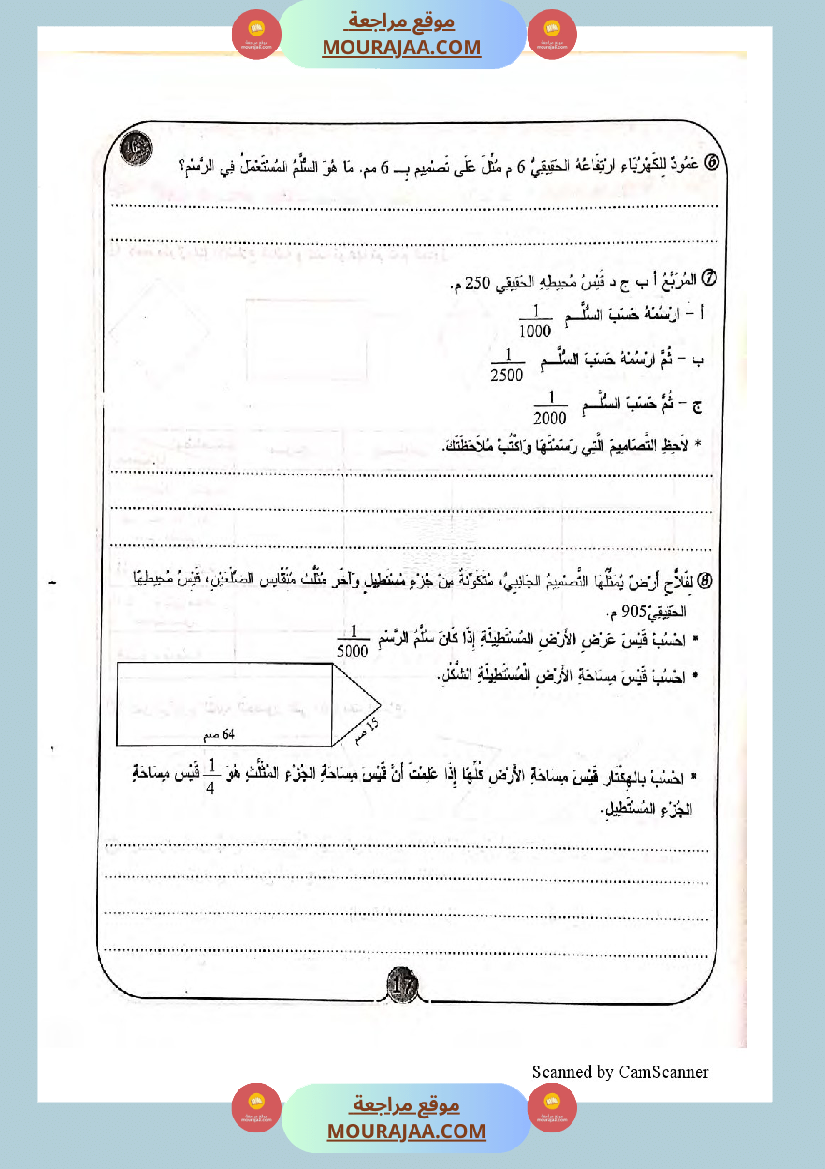 موقع مراجعة
MOURAJAA.COM
⑥ عَمُودٌ لِلْكَهْرُبَاء ارْتِفَاعُهُ الحَقِيقِيُّ 6 م مُثِّلَ عَلَى تَصْمِيم بِـــ 6 مم. مَا هُوَ السُّلَّمُ المُسْتَعْمَلُ فِي الرَّسْمِ؟
⑦ المُرَبَّعُ أ ب ج د قَيْسُ مُحِيطِهِ الحَقِيقِي 250 م.
أ – ارْسُمْهُ حَسَبَ السُّلَّــمِ 1/1000
ب – ثُمَّ ارْسُمْهُ حَسَبَ السُّلَّــمِ 1/2500
ج – ثُمَّ حَسَبَ السُّلَّــمِ 1/2000
* لاَحِظِ التَّصَامِيمَ الَّتِي رَسَمْتَهَا وَاكْتُبْ مُلاَحَظَتَكَ.
⑧ لِفَلاَّحٍ أَرْضٌ يُمَثِّلُهَا التَّصْمِيمُ الجَانِبِيُّ، مُتَكَوِّنَةٌ مِنْ جُزْءٍ مُسْتَطِيلٍ وَآخَر مُثَلَّث مُتَقَايِس الضِّلْعَيْنِ، قَيْسُ مُحِيطِهَا
الحَقِيقِيّ 905 م.
* احْسُبْ قَيْسَ عَرْضِ الأَرْضِ المُسْتَطِيلَةِ إِذَا كَانَ سُلَّمُ الرَّسْمِ 1/5000
* احْسُبْ قَيْسَ مِسَاحَةِ الأَرْضِ الْمُسْتَطِيلَةِ الشَّكْلِ.
64 صم
15 صم
* احْسُبْ بِالهِكْتَارِ قَيْسَ مِسَاحَةِ الأَرْضِ كُلِّهَا إِذَا عَلِمْتَ أَنَّ قَيْسَ مِسَاحَةِ الجُزْءِ المُثَلَّثِ هُوَ 1/4 قَيْس مِسَاحَةِ
الجُزْءِ المُسْتَطِيلِ.
17
Scanned by CamScanner
موقع مراجعة
MOURAJAA.COM